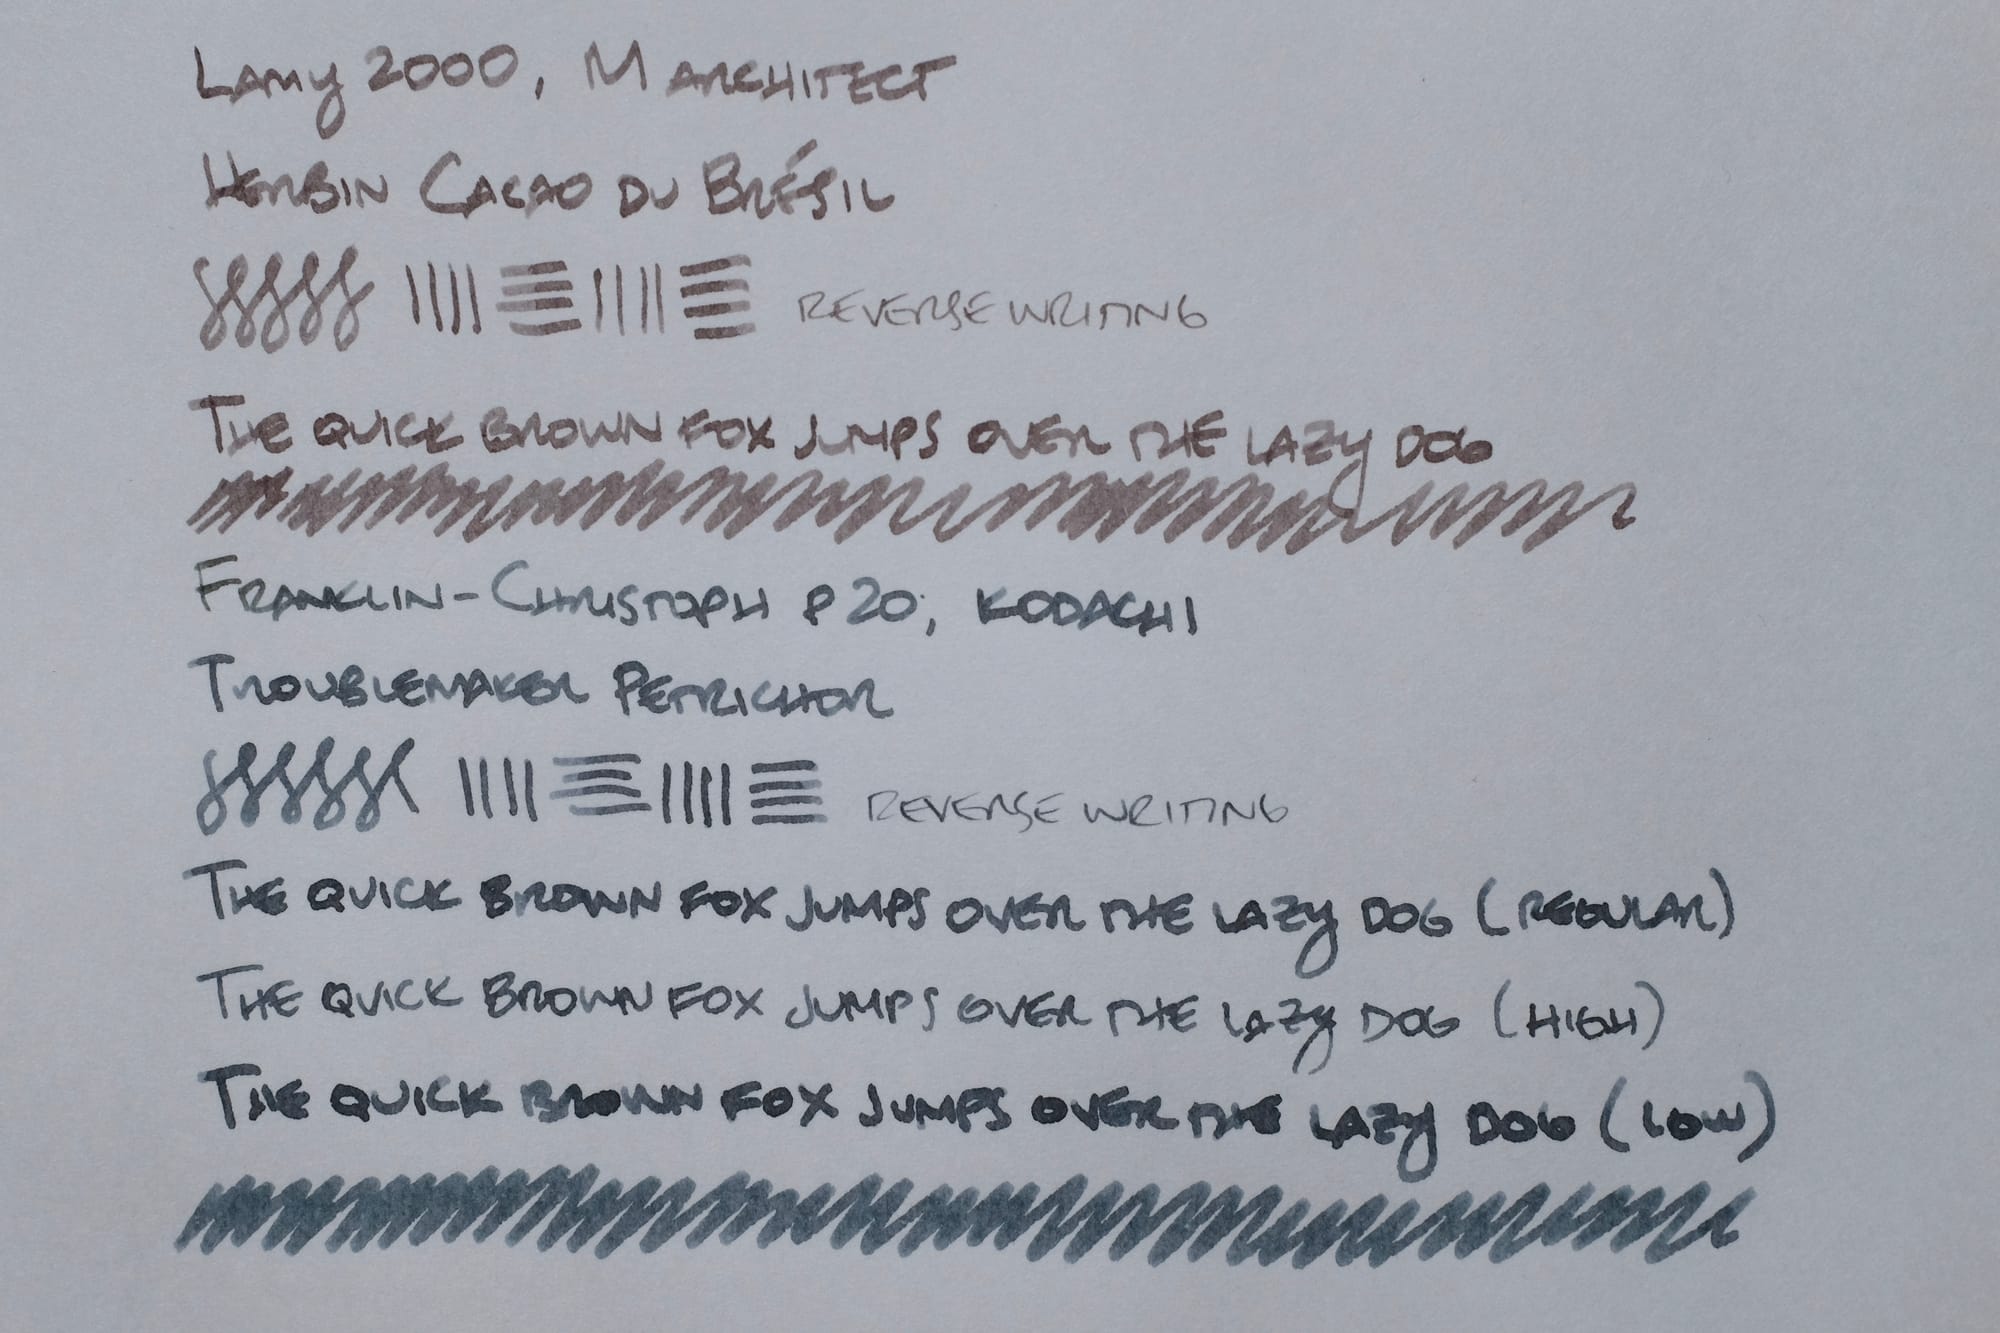 Lamy 2000, M ARCHITECT
HERBIN CACAO DU BRÉSIL
REVERSE WRITING
THE QUICK BROWN FOX JUMPS OVER THE LAZY DOG
FRANKLIN-CHRISTOPH P20, KODACHI
TROUBLEMAKER PETRICHOR
REVERSE WRITING
THE QUICK BROWN FOX JUMPS OVER THE LAZY DOG (REGULAR)
THE QUICK BROWN FOX JUMPS OVER THE LAZY DOG (HIGH)
THE QUICK BROWN FOX JUMPS OVER THE LAZY DOG (LOW)